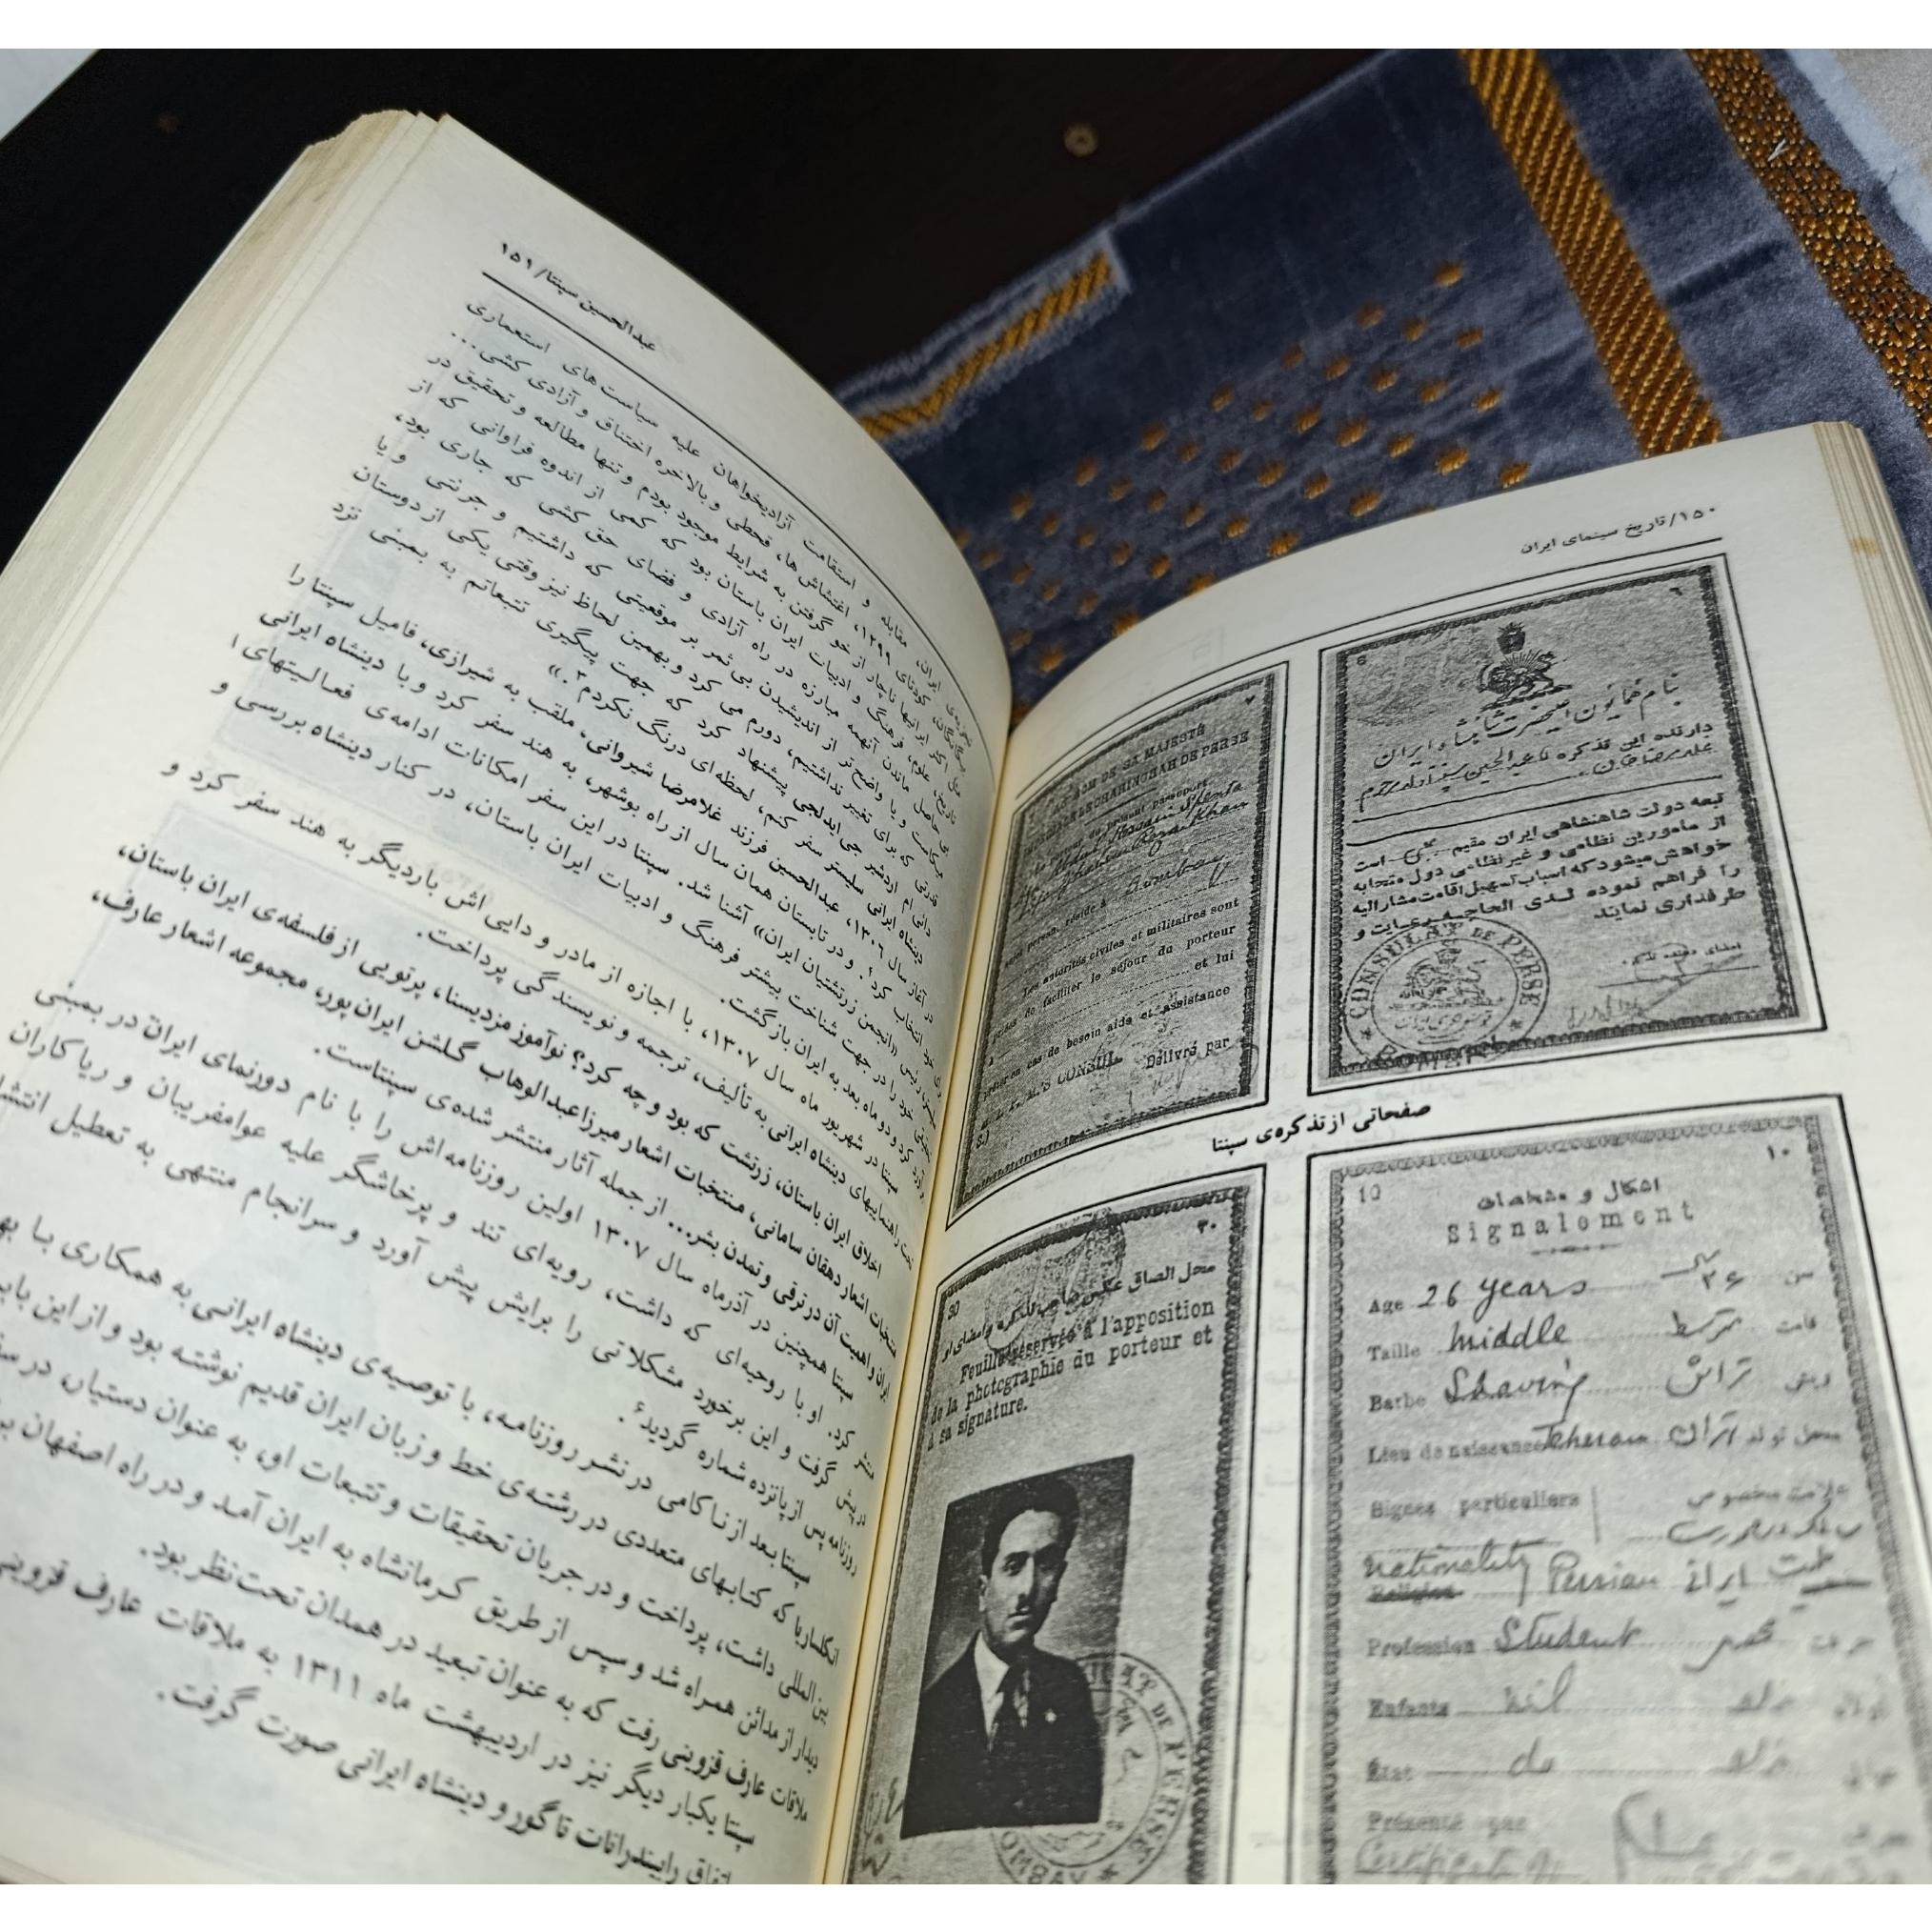 ۱۵۰/تاریخ سینمای ایران
۶
6
بنام همایون اعلیحضرت شاهنشاه ایران
دارنده این تذکره
تبعه دولت شاهنشاهی ایران مقیم بمبئی است
از مأمورین نظامی و غیر نظامی دول متحابه
خواهش میشود که اسباب تسهیل اقامت مشارالیه
را فراهم نموده لدی الحاجه رعایت و
طرفداری نمایند
CONSULAT DE PERSE
۷
AU NOM DE SA MAJESTÉ
IMPÉRIALE LE CHAHINCHAH DE PERSE
Le présent passeport
Abdul Hosain Spenta
réside à Bombay
Les autorités civiles et militaires sont
de faciliter le séjour du porteur
et lui
en cas de besoin aide et assistance
CONSUL Délivré par
صفحاتی از تذکره‌ی سپنتا
10
۱۰
اشکال و مشخصات
Signalement
Age 26 years سن ۲۶ سال
Taille middle متوسط قامت
Barbe Shaving تراش ریش
Lieu de naissance Teheran تهران محل تولد
Signes particuliers علامت مخصوص
nationality Persian ایرانی
Religion
Profession Student محصل حرفت
Enfants nil ندارد
État do ندارد
Présenté par
30
۳۰
محل الصاق عکس صاحب تذکره و امضای او
Feuille réservée à l'apposition
de la photographie du porteur et
à sa signature.
DE PERSE
BOMBAY
عبدالحسین سپنتا/۱۵۱
ایران، مقابله و استقامت آزادیخواهان علیه سیاست‌های استعماری
کودتای ۱۲۹۹، اغتشاش‌ها، قحطی و بالاخره اختناق و آزادی کشی...
ناچار از خو گرفتن به شرایط موجود بودم و تنها مطالعه و تحقیق در
علوم، فرهنگ و ادبیات ایران باستان بود که کمی از اندوه فراوانی که از
حاصل ماندن آنهمه مبارزه در راه آزادی و فضای حق کشی که جاری بود،
و یا واضح‌تر از اندیشیدن بی ثمر بر موقعیتی که داشتیم و جرئتی و یا
قدرتی که برای تغییر نداشتیم، دورم می کرد و بهمین لحاظ نیز وقتی یکی از دوستان
دائی ام اردشیر جی ایدلجی پیشنهاد کرد که جهت پیگیری تتبعاتم به بمبئی نزد
دینشاه ایرانی سلیستر سفر کنم، لحظه‌ای درنگ نکردم۳.»
در آغاز سال ۱۳۰۶، عبدالحسین فرزند غلامرضا شیروانی، ملقب به شیرازی، فامیل سپنتا را
خود انتخاب کرد۴. و در تابستان همان سال از راه بوشهر، به هند سفر کرد و با دینشاه ایرانی
رئیس «انجمن زرتشتیان ایران» آشنا شد. سپنتا در این سفر امکانات ادامه‌ی فعالیتهای
خود را در جهت شناخت بیشتر فرهنگ و ادبیات ایران باستان، در کنار دینشاه بررسی و
کرد و دو ماه بعد به ایران بازگشت.
سپنتا در شهریور ماه سال ۱۳۰۷، با اجازه از مادر و دایی اش باردیگر به هند سفر کرد و
تحت راهنماییهای دینشاه ایرانی به تألیف، ترجمه و نویسندگی پرداخت.
اخلاق ایران باستان، زرتشت که بود و چه کرد؟ نوآموز مزدیسنا، پرتویی از فلسفه‌ی ایران باستان،
منتخبات اشعار دهقان سامانی، منتخبات اشعار میرزا عبدالوهاب گلشن ایران پور، مجموعه اشعار عارف،
ایران و اهمیت آن در ترقی و تمدن بشر... از جمله آثار منتشر شده‌ی سپنتاست.
سپنتا همچنین در آذرماه سال ۱۳۰۷ اولین روزنامه اش را با نام دورنمای ایران در بمبئی
منتشر کرد. او با روحیه‌ای که داشت، رویه‌ای تند و پرخاشگر علیه عوامفریبان و ریاکاران
در پیش گرفت و این برخورد مشکلاتی را برایش پیش آورد و سرانجام منتهی به تعطیل
روزنامه پس از پانزده شماره گردید۶.
سپنتا بعد از ناکامی در نشر روزنامه، با توصیه‌ی دینشاه ایرانی به همکاری با
انکلساریا که کتابهای متعددی در رشته‌ی خط و زبان ایران قدیم نوشته بود و از این
بین‌المللی داشت، پرداخت و در جریان تحقیقات و تتبعات او، به عنوان دستیار، در
دیدار از مدائن همراه شد و سپس از طریق کرمانشاه به ایران آمد و در راه اصفهان
ملاقات عارف قزوینی رفت که به عنوان تبعید در همدان تحت‌نظر بود.
سپنتا یکبار دیگر نیز در اردیبهشت ماه ۱۳۱۱ به ملاقات عارف قزوینی
اتفاق رابیندرانات تاگور و دینشاه ایرانی صورت گرفت.